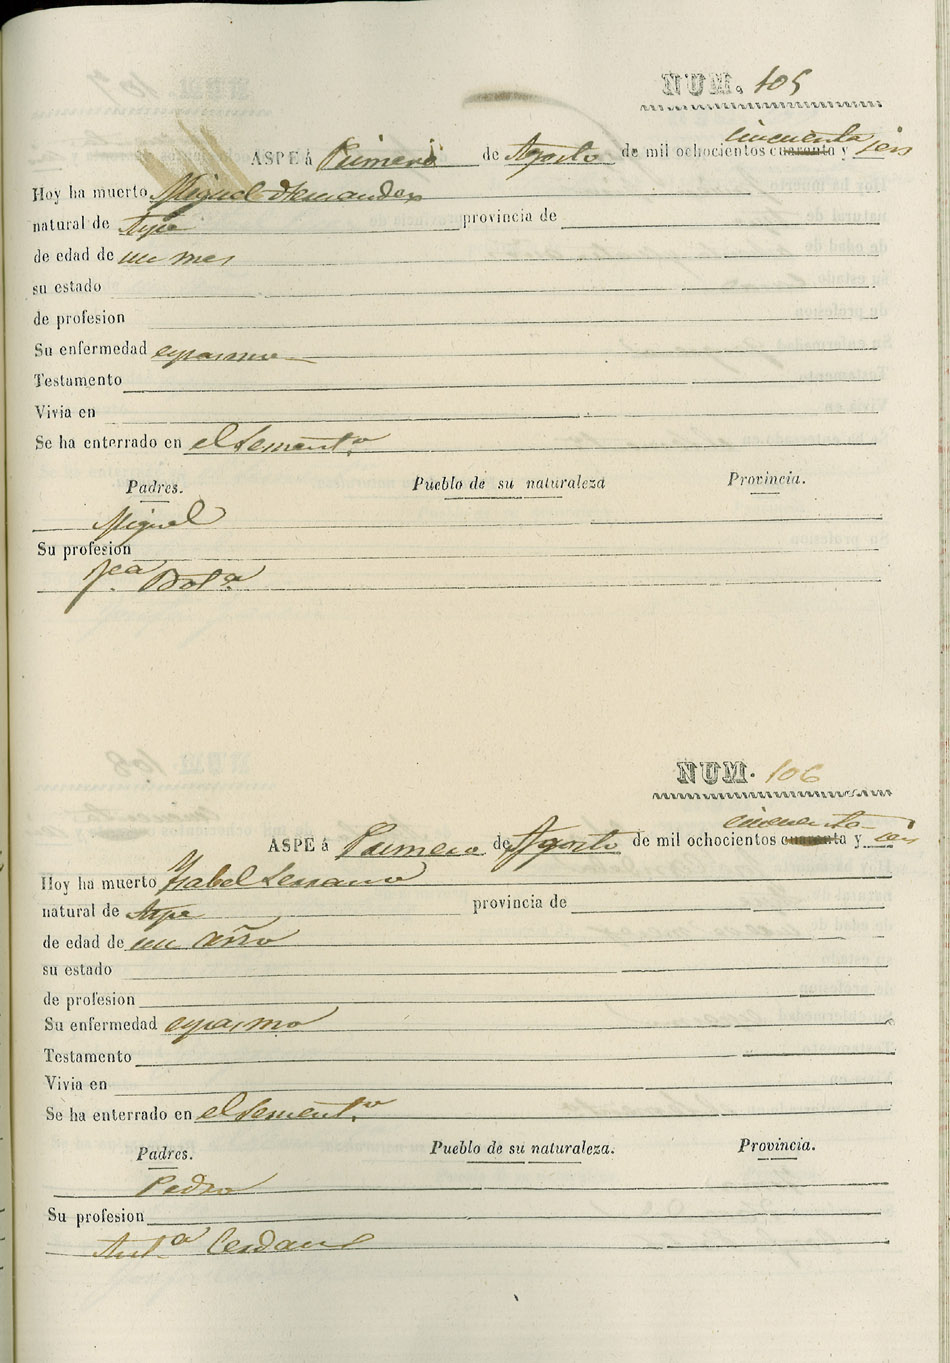 NUM. 105
ASPE á Primero de Agosto de mil ochocientos cincuenta cuarenta y seis
Hoy ha muerto Miguel Hernandez
natural de Aspe provincia de
de edad de un mes
su estado
de profesion
Su enfermedad espasmo
Testamento
Vivia en
Se ha enterrado en el Sementº
Padres. Pueblo de su naturaleza Provincia.
Miguel
Su profesion
NUM. 106
ASPE á Primero de Agosto de mil ochocientos cincuenta cuarenta y seis
Hoy ha muerto Ysabel Serrano
natural de Aspe provincia de
de edad de un año
su estado
de profesion
Su enfermedad espasmo
Testamento
Vivia en
Se ha enterrado en el Sementº
Padres. Pueblo de su naturaleza. Provincia.
Pedro
Su profesion
Antª Cerdan